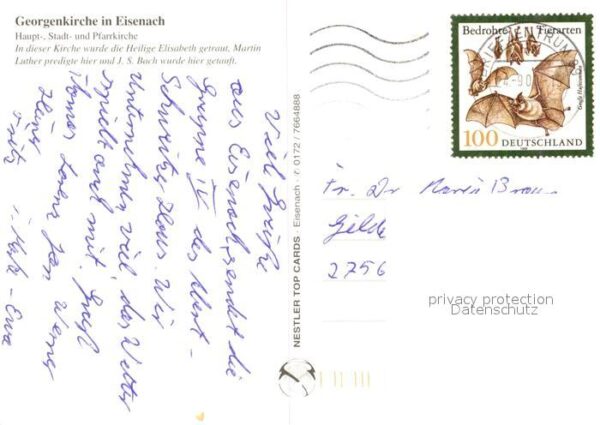 Georgenkirche in Eisenach
Haupt-, Stadt- und Pfarrkirche
In dieser Kirche wurde die Heilige Elisabeth getraut, Martin
Luther predigte hier und J. S. Bach wurde hier getauft.
Viel Grüße
aus Eisenach sendet die
Gruppe IV des Albert-
Schweitzer Haus. Wir
unternehmen viel, das Wetter
spielt auch mit. Gruß
Jan
Heinz
Fritz
NESTLER TOP CARDS · Eisenach · 0172 / 7664888
Bedrohte Tierarten
Große Hufeisennase
100 DEUTSCHLAND
Fr. Dr
2756
privacy protection
Datenschutz